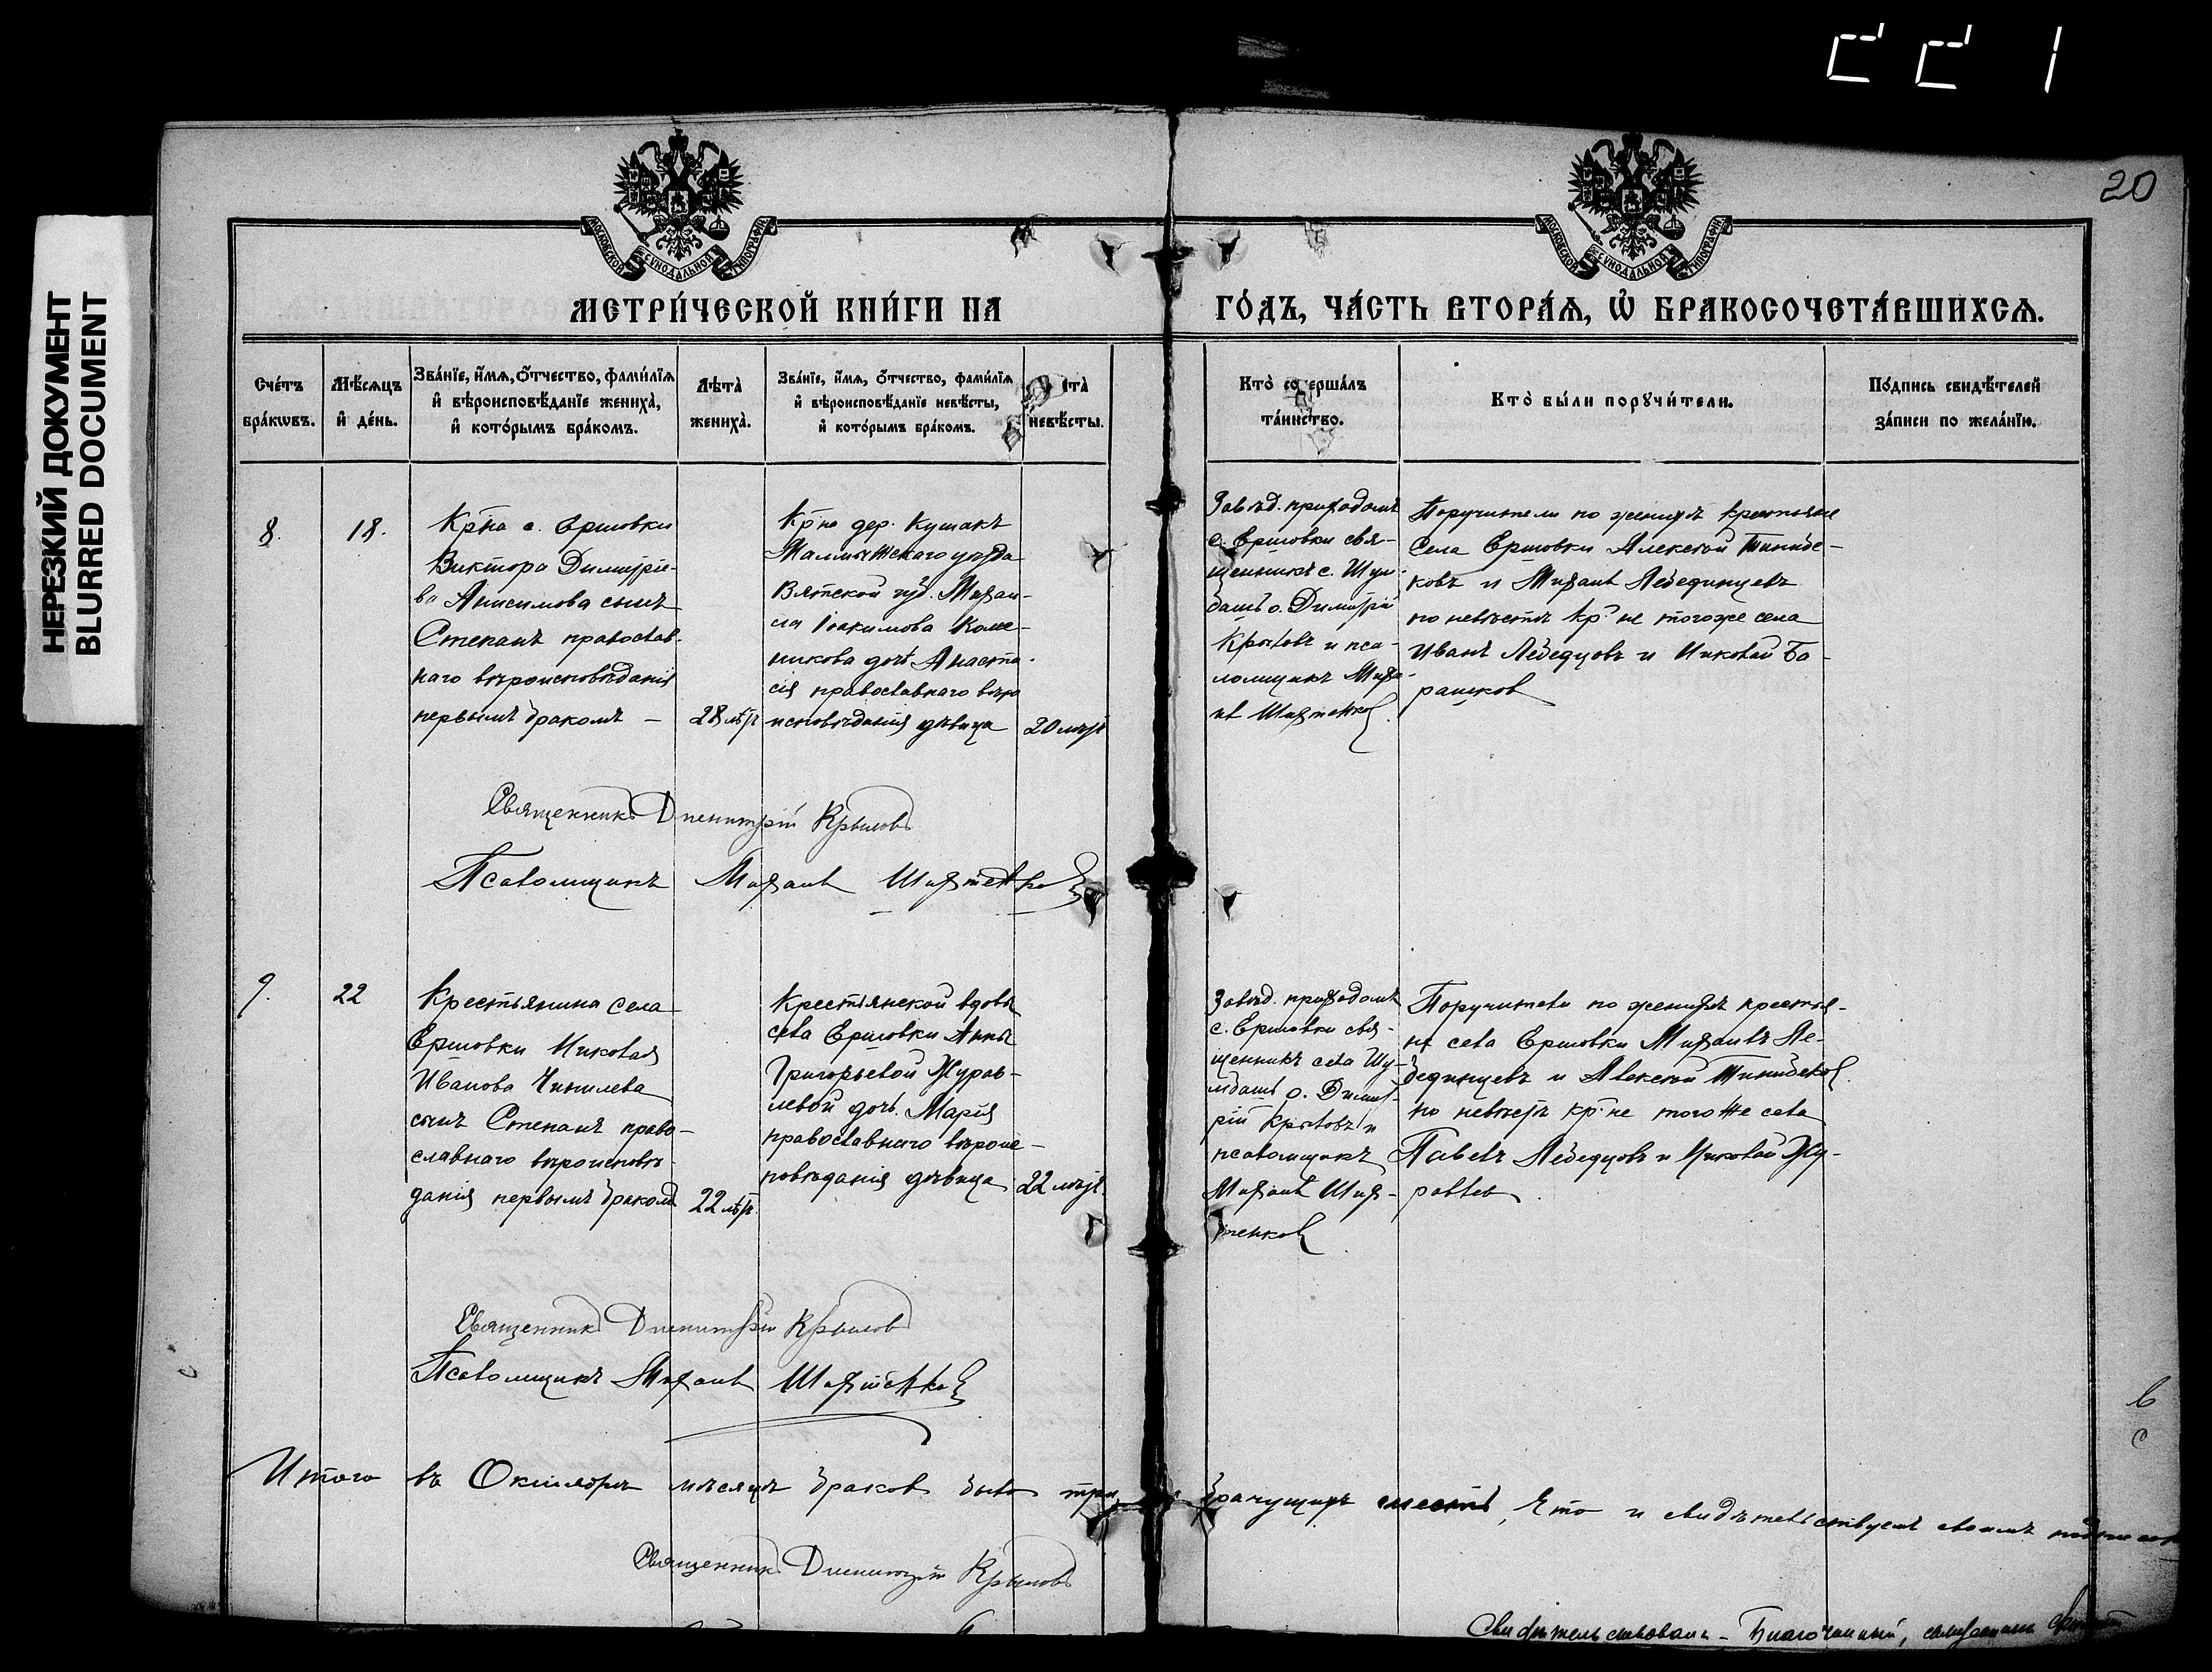 221
НЕРЕЗКИЙ ДОКУМЕНТ
BLURRED DOCUMENT
20
МОСКОВСКОЙ СѴНОДАЛЬНОЙ ТИПОГРАФІИ
МОСКОВСКОЙ СѴНОДАЛЬНОЙ ТИПОГРАФІИ
МЕТРИ́ЧЕСКОЙ КНИ́ГИ НА
ГО́ДЪ, ЧА́СТЬ ВТОРА́Ѧ, Ѽ БРАКОСОЧЕТА́ВШИХСѦ.
Сче́тъ
бра́кωвъ.
Мѣ́сѧцъ
и҆ де́нь.
Зва́нїе, и҆́мѧ, ѻ҆́тчество, фами́лїѧ
и҆ вѣроисповѣ́данїе жениха̀,
и҆ кото́рымъ бра́комъ.
Лѣта̀
жениха̀.
Зва́нїе, и҆́мѧ, ѻ҆́тчество, фами́лїѧ
и҆ вѣроисповѣ́данїе невѣ́сты,
и҆ кото́рымъ бра́комъ.
та̀
невѣ́сты.
Кто̀ соверша́лъ
та́инство.
Кто̀ бы́ли порꙋчи́тели.
По́дпись свидѣ́телей
за́писи по жела́нїю.
8.
18.
Кр-на с. Ершовки
Виктора Димитріе-
ва Анисимова сынъ
Степанъ православ-
наго вѣроисповѣданія
первымъ бракомъ –
28 лѣтъ
Кр-на дер. Кушакъ
Малмыжскаго уѣзда
Вятской губ. Михаи-
ла Іоакимова
никова дочь Анаста-
сія православнаго вѣро
исповѣданія дѣвица
20 лѣтъ
Завѣд. приходомъ
с. Ершовки свя-
щенникъ с. Шул-
дашъ о. Димитрій
Крыловъ и пса-
ломщикъ Миха-
илъ Шихтенков
Поручители по женихѣ крестьяне
села Ершовки Алексѣй
ковъ и Михаилъ Лебединцевъ
по невѣстѣ кр-не тогоже села
Иванъ Лебедцовъ и Николай Ба-
рашков
Священникъ Димитрій Крыловъ
Псаломщикъ Михаилъ Шихтенков
9.
22
Крестьянина села
Ершовки Николая
Иванова Чинилева
сынъ Степанъ право-
славнаго вѣроисповѣ-
данія первымъ бракомъ
22 лѣтъ
Крестьянской вдовы
села Ершовки Анны
Григорьевой Журав-
левой дочь Марія
православнаго вѣроис-
повѣданія дѣвица
22 лѣтъ
Завѣд. приходомъ
с. Ершовки свя-
щенникъ села Шу-
лдашъ о. Димит-
рій Крыловъ и
псаломщикъ
Михаилъ Ших-
тенков
Поручители по женихѣ крестья-
не села Ершовки Михаилъ Ле-
бединцевъ и Алексѣй
по невѣстѣ кр-не тогоже села
Павелъ Лебедцовъ и Николай Жу-
равлев
Священникъ Димитрій Крыловъ
Псаломщикъ Михаилъ Шихтенков
Итого въ Октябрѣ мѣсяцѣ браков было три, брачущихся шесть, Что и свидѣтельствуемъ своимъ подписом
Священникъ Димитрій Крыловъ
Свидѣтельствовалъ – Благочинный, священникъ